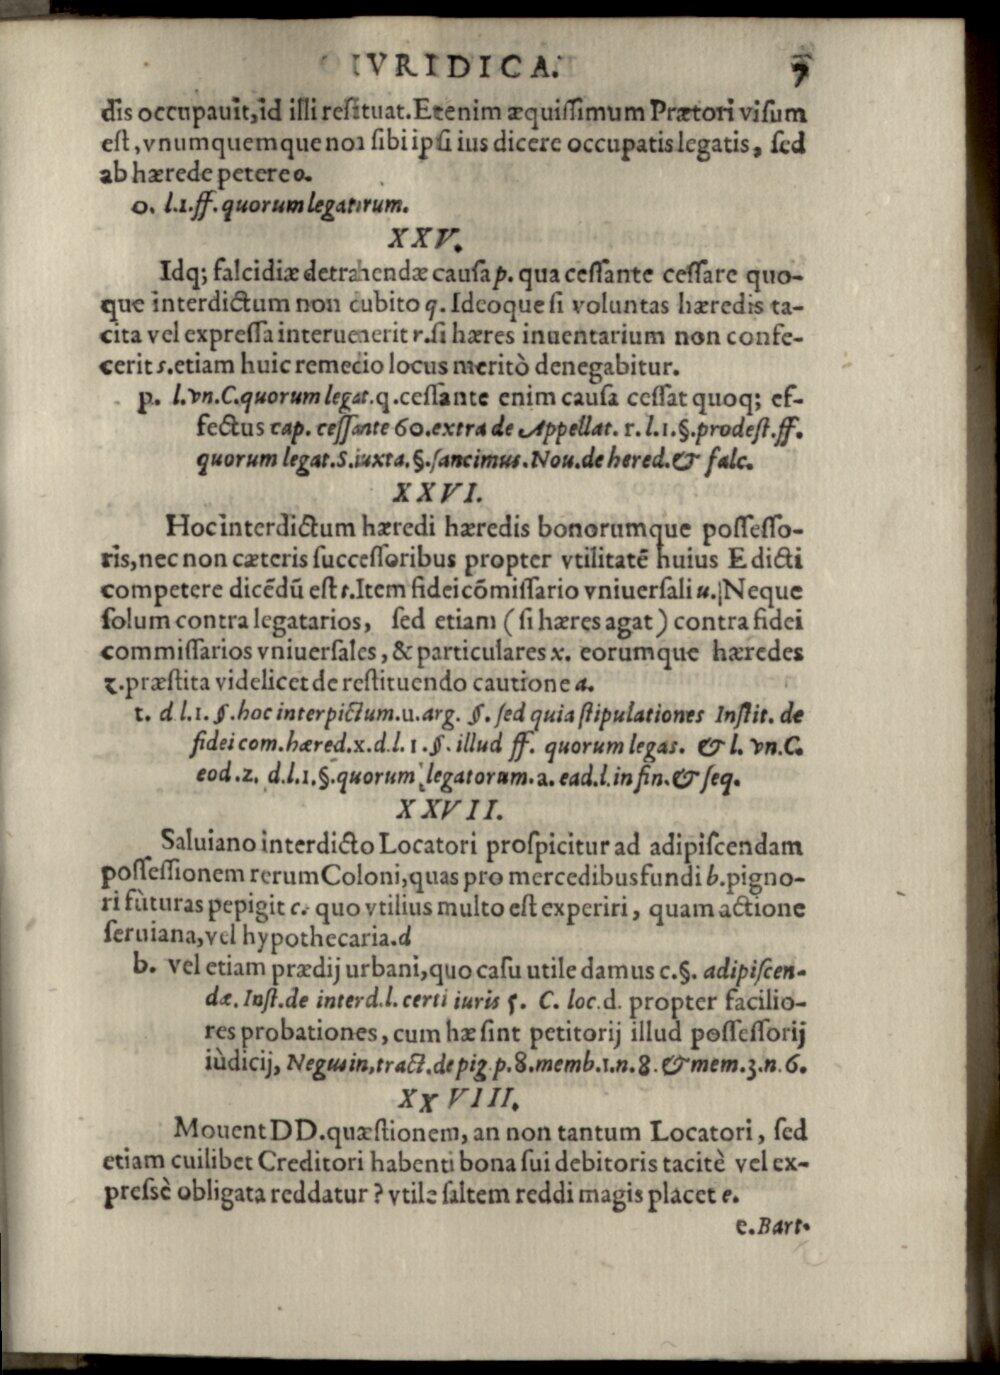 IVRIDICA. 7
dis occupauit,id illi restituat.Etenim æquissimum Prætori visum
est,vnumquemque non sibi ipsi ius dicere occupatis legatis, sed
ab hærede petere o.
o. l.1.ff.quorum legatorum.
XXV.
Idq; falcidiæ detrahendæ causa p. qua cessante cessare quo-
que interdictum non cubito q. Ideoque si voluntas hæredis ta-
cita vel expressa interuenerit r.si hæres inuentarium non confe-
cerit s.etiam huic remedio locus meritò denegabitur.
p. l.vn.C.quorum legat.q.cessante enim causa cessat quoq; ef-
fectus cap. cessante 60.extra de Appellat. r.l.1.§.prodest.ff.
quorum legat.S.iuxta.§.sancimus.Nou.de hered.& falc.
XXVI.
Hoc interdictum hæredi hæredis bonorumque possesso-
ris,nec non cæteris successoribus propter vtilitatē huius Edicti
competere dicēdū est t.Item fidei cōmissario vniuersali u. Neque
solum contra legatarios, sed etiam (si hæres agat) contra fidei
commissarios vniuersales,& particulares x. eorumque hæredes
z.præstita videlicet de restituendo cautione a.
t. d l.1. §.hoc interpictum.u.arg. §. sed quia stipulationes Instit. de
fidei com.hæred.x.d.l. 1.§. illud ff. quorum legas. & l. vn.C.
eod.z. d.l.1.§.quorum legatorum.a. ead.l.in fin.& seq.
XXVII.
Saluiano interdicto Locatori prospicitur ad adipiscendam
possessionem rerum Coloni,quas pro mercedibus fundi b.pigno-
ri fùturas pepigit c. quo vtilius multo est experiri, quam actione
seruiana,vel hypothecaria.d
b. vel etiam prædij urbani,quo casu utile damus c.§. adipiscen-
dæ. Inst.de interd.l. certi iuris 5. C. loc.d. propter facilio-
res probationes, cum hæ sint petitorij illud possessorij
iùdicij, Negusin,tract.de pig.p.8.memb.1.n.8.& mem.3.n.6.
XXVIII.
Mouent DD.quæstionem, an non tantum Locatori, sed
etiam cuilibet Creditori habenti bona sui debitoris tacitè vel ex-
pressè obligata reddatur? vtile saltem reddi magis placet e.
e.Bart.